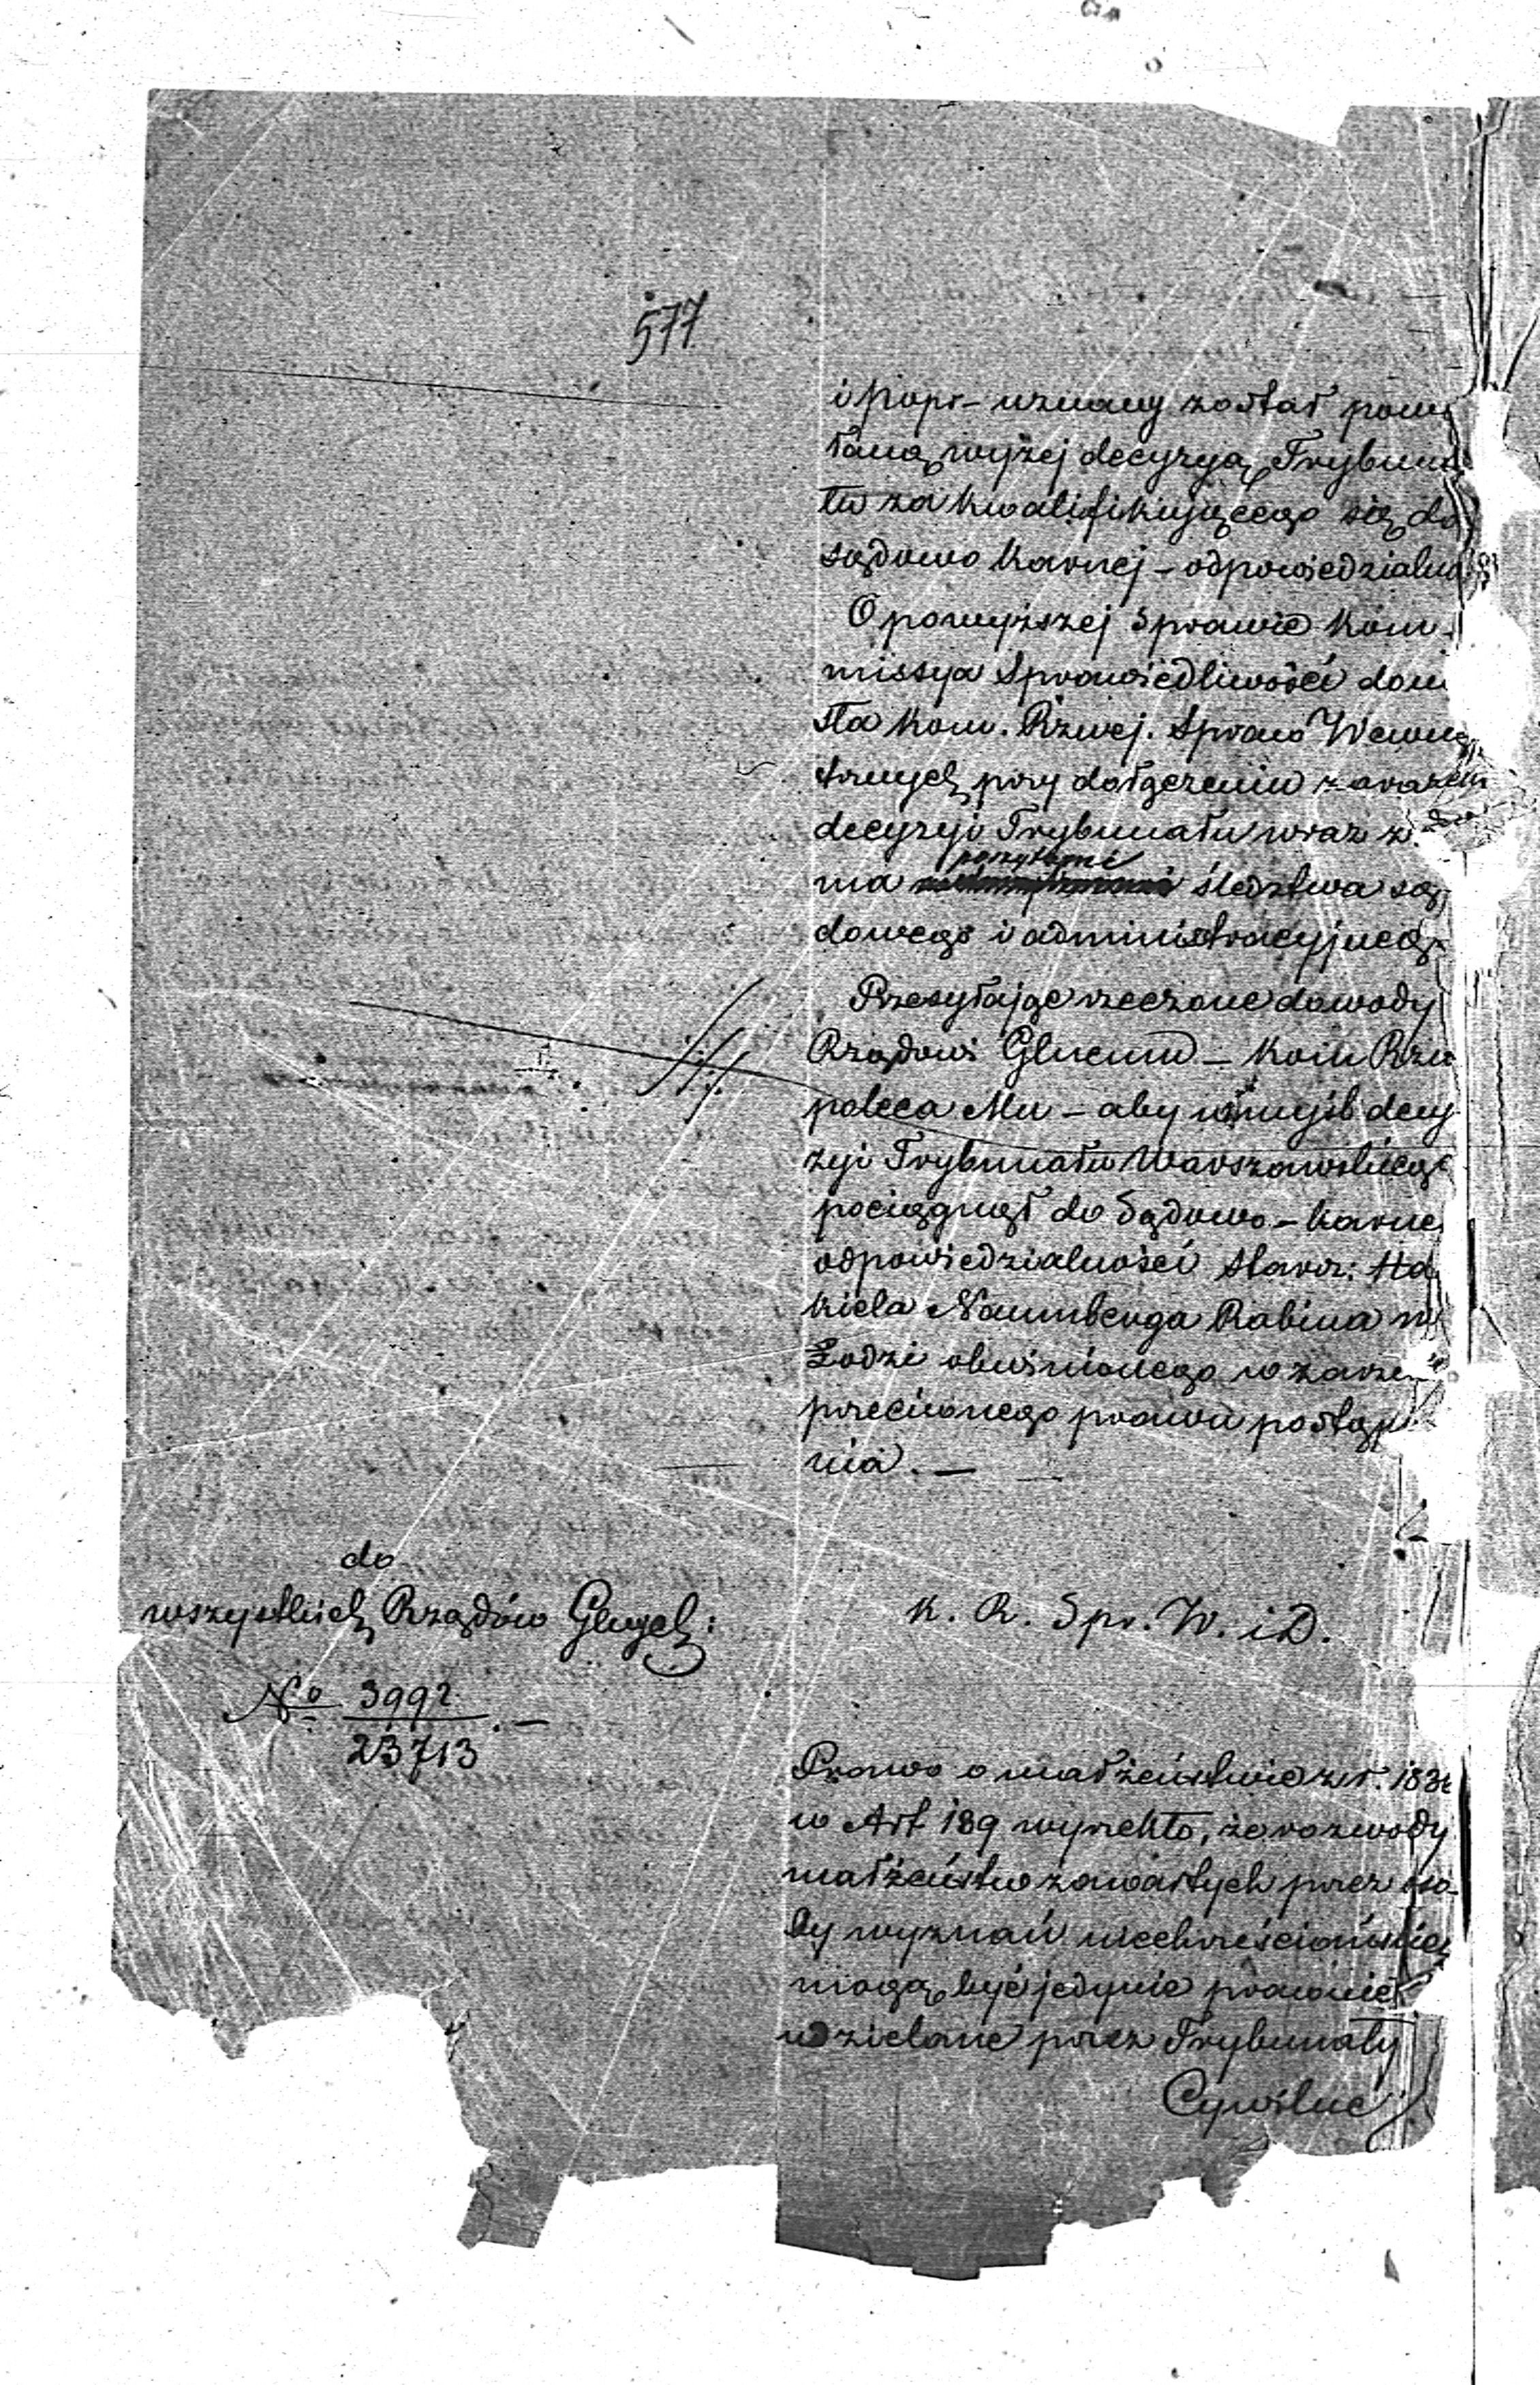 577
i Popr- uznany został powo
łaną wyżej decyzyą Trybuna
łu za kwalifikującego się do
sądowo karnej - odpowiedzialno
O powyższej sprawie Kom-
missya Sprawiedliwości donio
sła Kom. Rzwej. Spraw Wewnę
trznych przy dołączeniu zarazem
decyzyi Trybunału wraz z
ma poszytami śledztwa są
dowego i administracyjnego
Przesyłając rzeczone dowody
Rządowi Glnemu - Kom Rzą
poleca Mu - aby w myśl decy
zyi Trybunału Warszawskiego
pociągnął do Sądowo - karnej
odpowiedzialności Starz: Ha
kiela Naumberga Rabina w
Łodzi obwinionego w zarzu
przeciwnego prawu postąp
nia. —
do
wszystkich Rządów Glnych:
K. R. Spr. W. i D.
No 3992
23713
Prawo o małżeństwie z r. 1836
w Art 189 wyrzekło, że rozwody
małżeństw zawartych przez oso-
by wyznań niechrześciańskich
mogą być jedynie prawnie
udzielane przez Trybunały
Cywilne